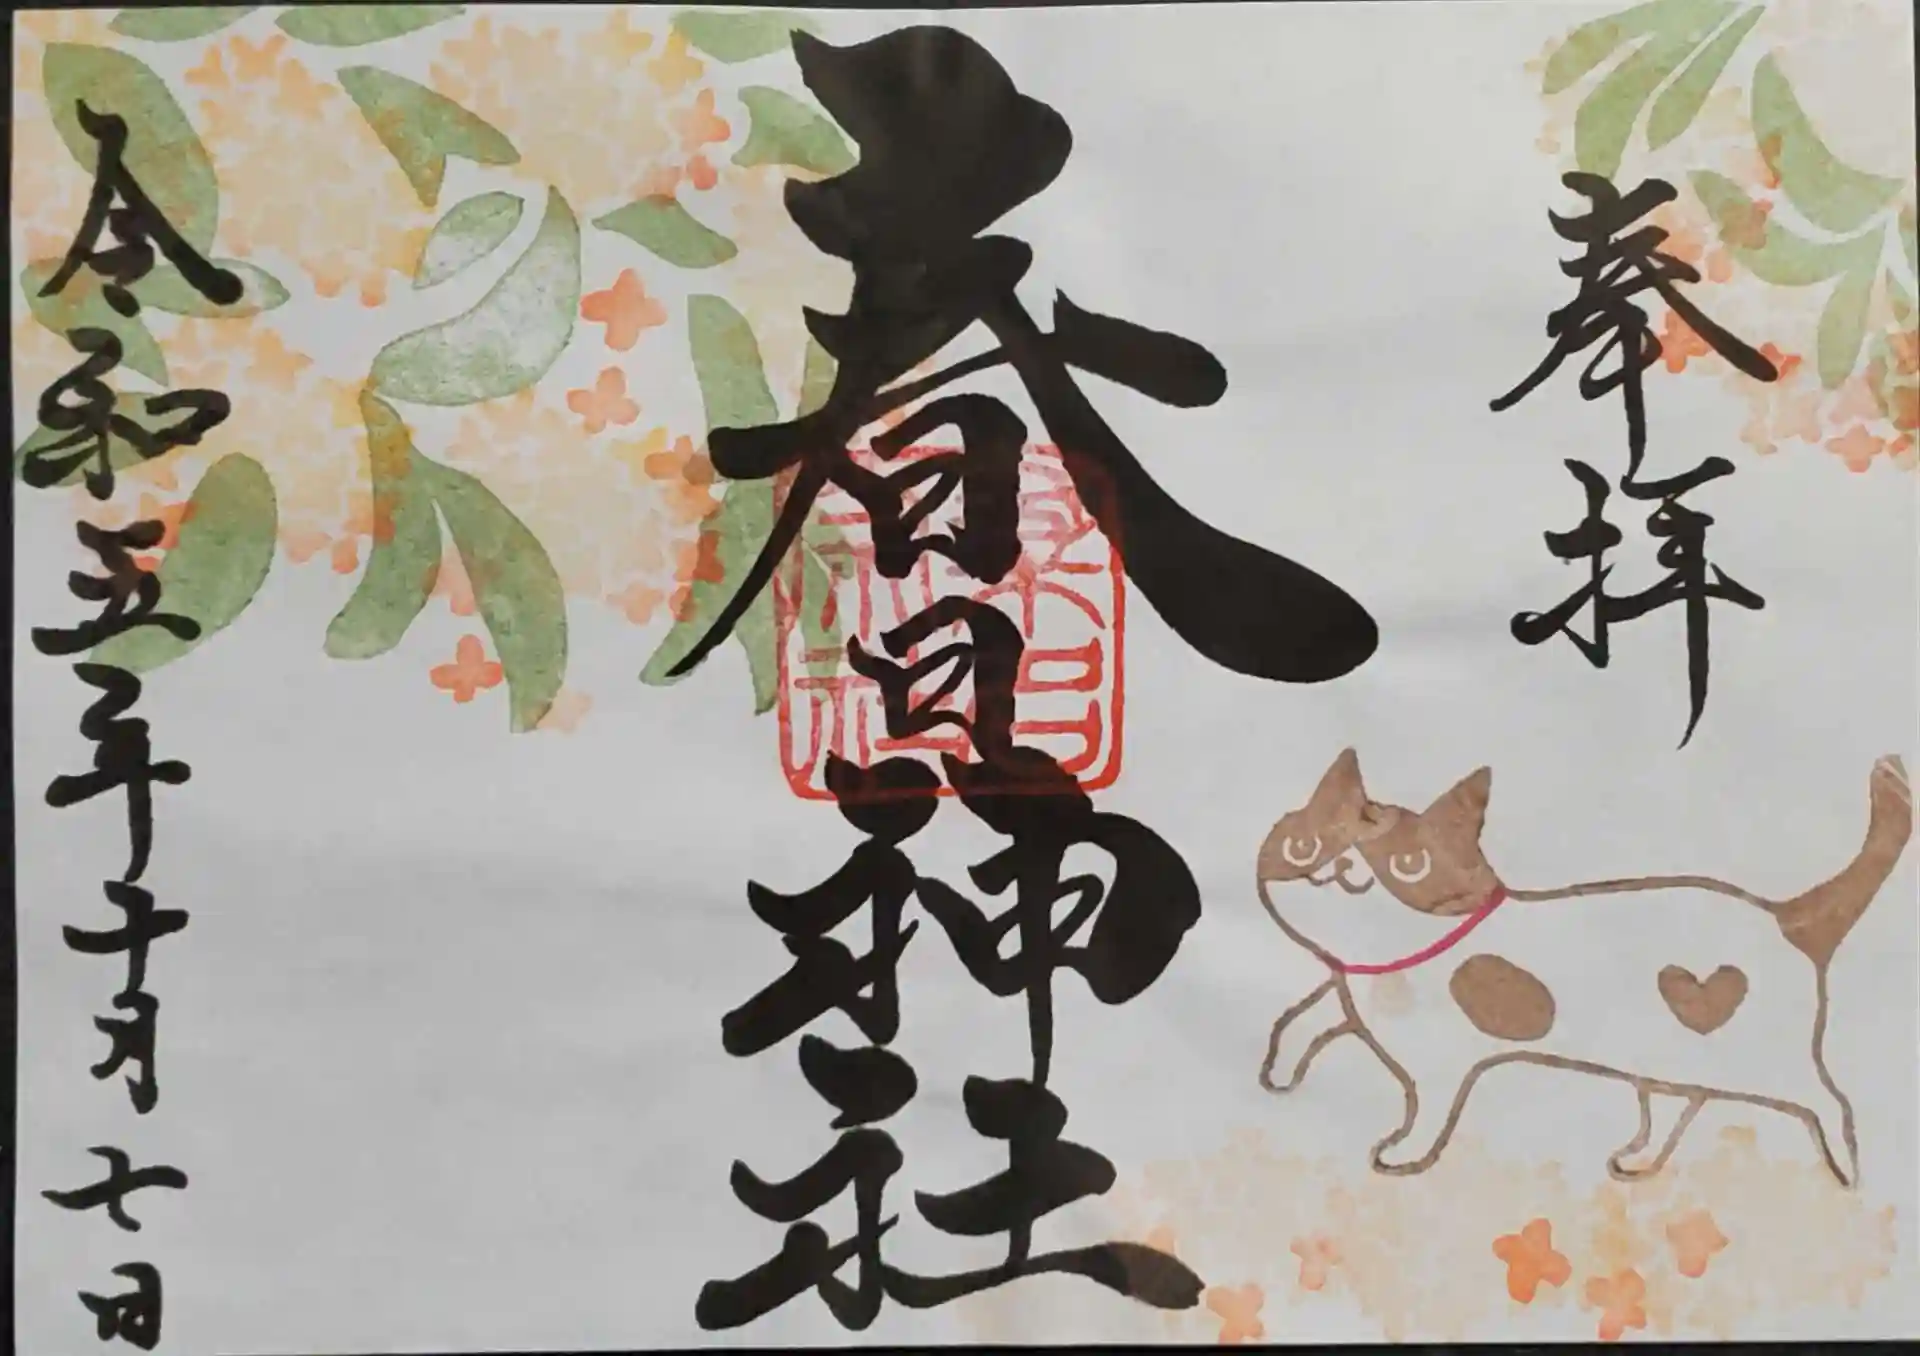 奉拝
春日神社
春日神社
令和五年十月七日